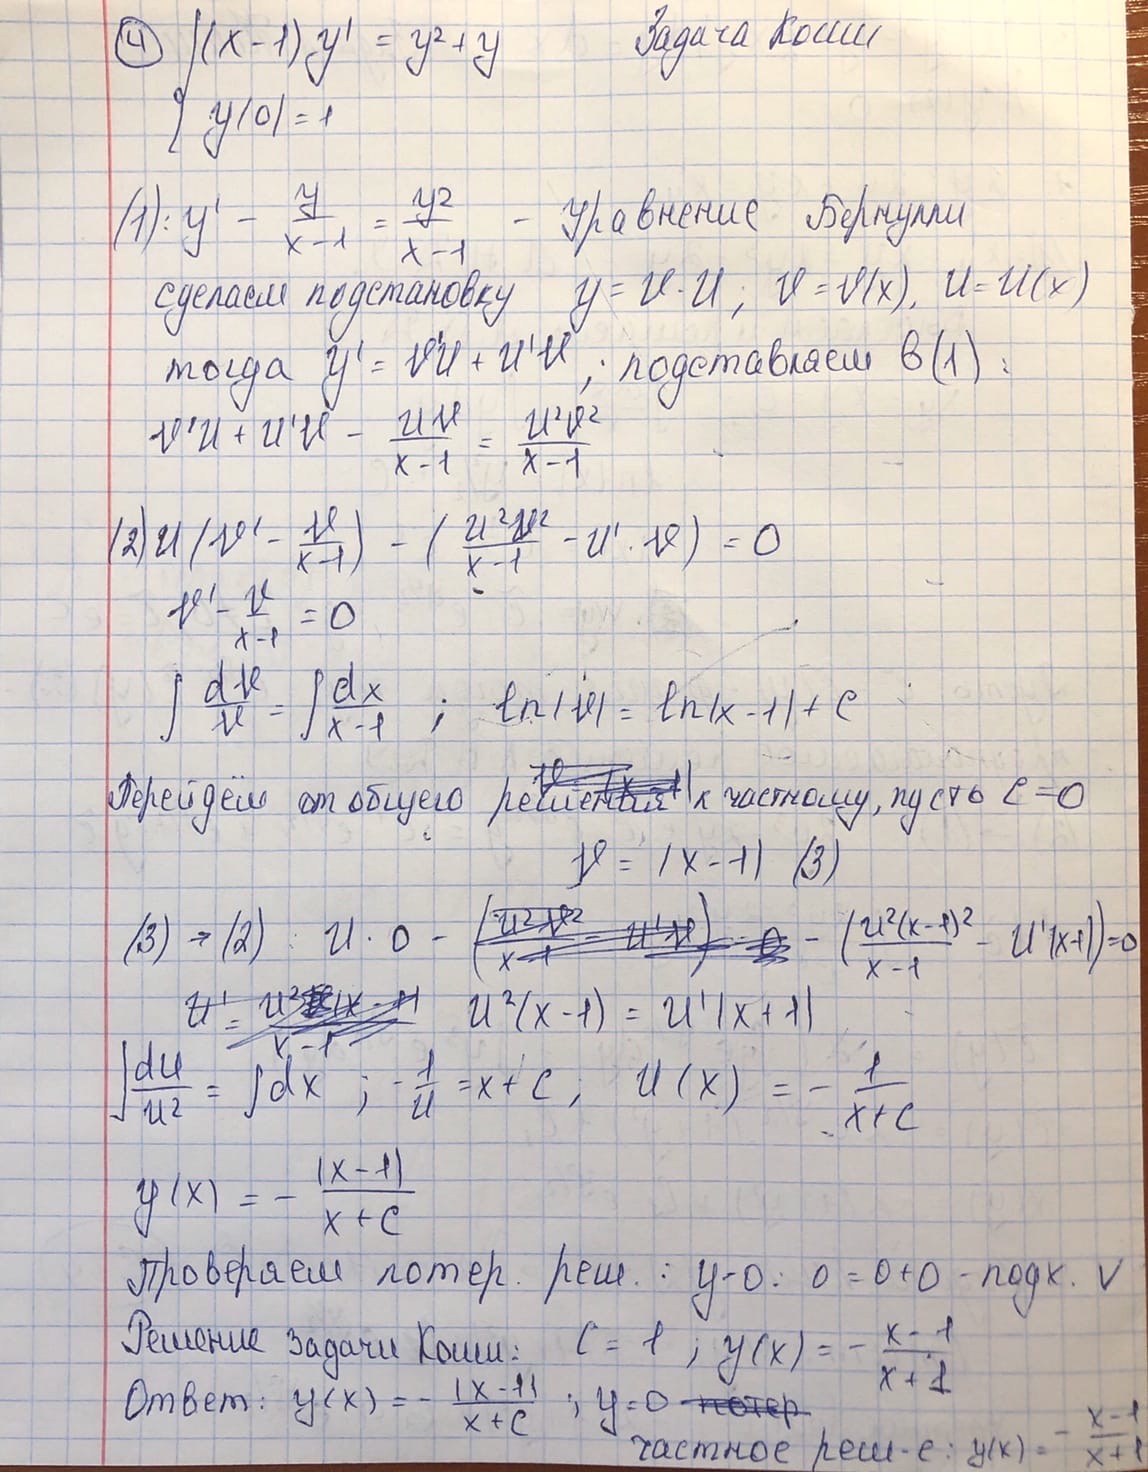 ④ { (x-1)y' = y²+y Задача Коши
y(0)=1
(1): y' - y/(x-1) = y²/(x-1) - Уравнение Бернулли
сделаем подстановку y = v·u; v=v(x), u=u(x)
тогда y' = v'u + u'v; подставляем в (1):
v'u + u'v - uv/(x-1) = u²v²/(x-1)
(2) u(v' - v/(x-1)) - (u²v²/(x-1) - u'·v) = 0
v' - v/(x-1) = 0
∫dv/v = ∫dx/(x-1) ; ln|v| = ln|x-1| + C
Перейдём от общего решения к частному, пусть C=0
v = (x-1) (3)
(3) → (2): u·0 - (u²v²/(x-1) - u'v) = 0 - (u²(x-1)²/(x-1) - u'(x+1)) = 0
u' = u²(x-1)/(x-1) u²(x-1) = u'(x+1)
∫du/u² = ∫dx ; -1/u = x+C; u(x) = - 1/(x+C)
y(x) = - (x-1)/(x+C)
Проверяем потер. реш.: y=0: 0=0+0 - подх. v
Решение Задачи Коши: C=1; y(x) = - (x-1)/(x+1)
Ответ: y(x) = - (x-1)/(x+C) ; y=0 потер
частное реш-е: y(x) = - (x-1)/(x+1)